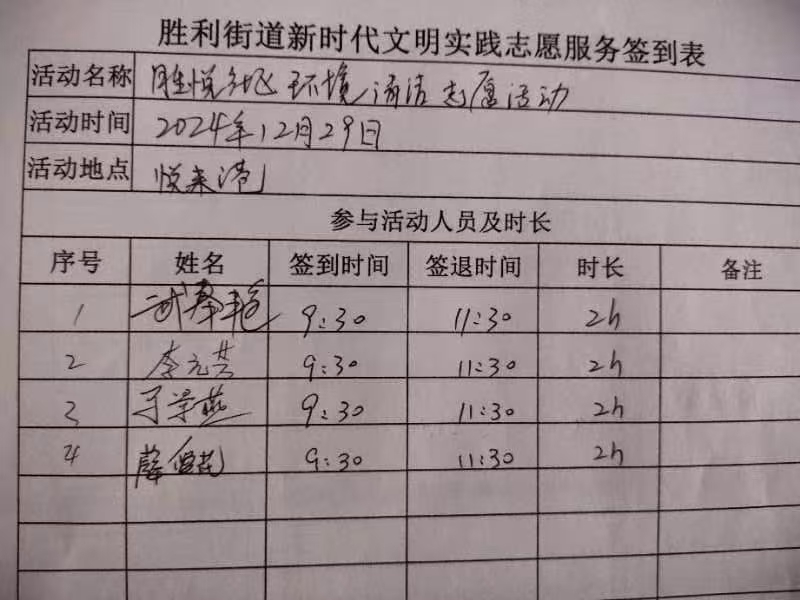 胜利街道新时代文明实践志愿服务签到表
活动名称 胜悦社区环境清洁志愿活动
活动时间 2024年12月29日
活动地点 悦来港
参与活动人员及时长
序号 姓名 签到时间 签退时间 时长 备注
1 9:30 11:30 2h
2 李元芬 9:30 11:30 2h
3 于学燕 9:30 11:30 2h
4 薛俊花 9:30 11:30 2h